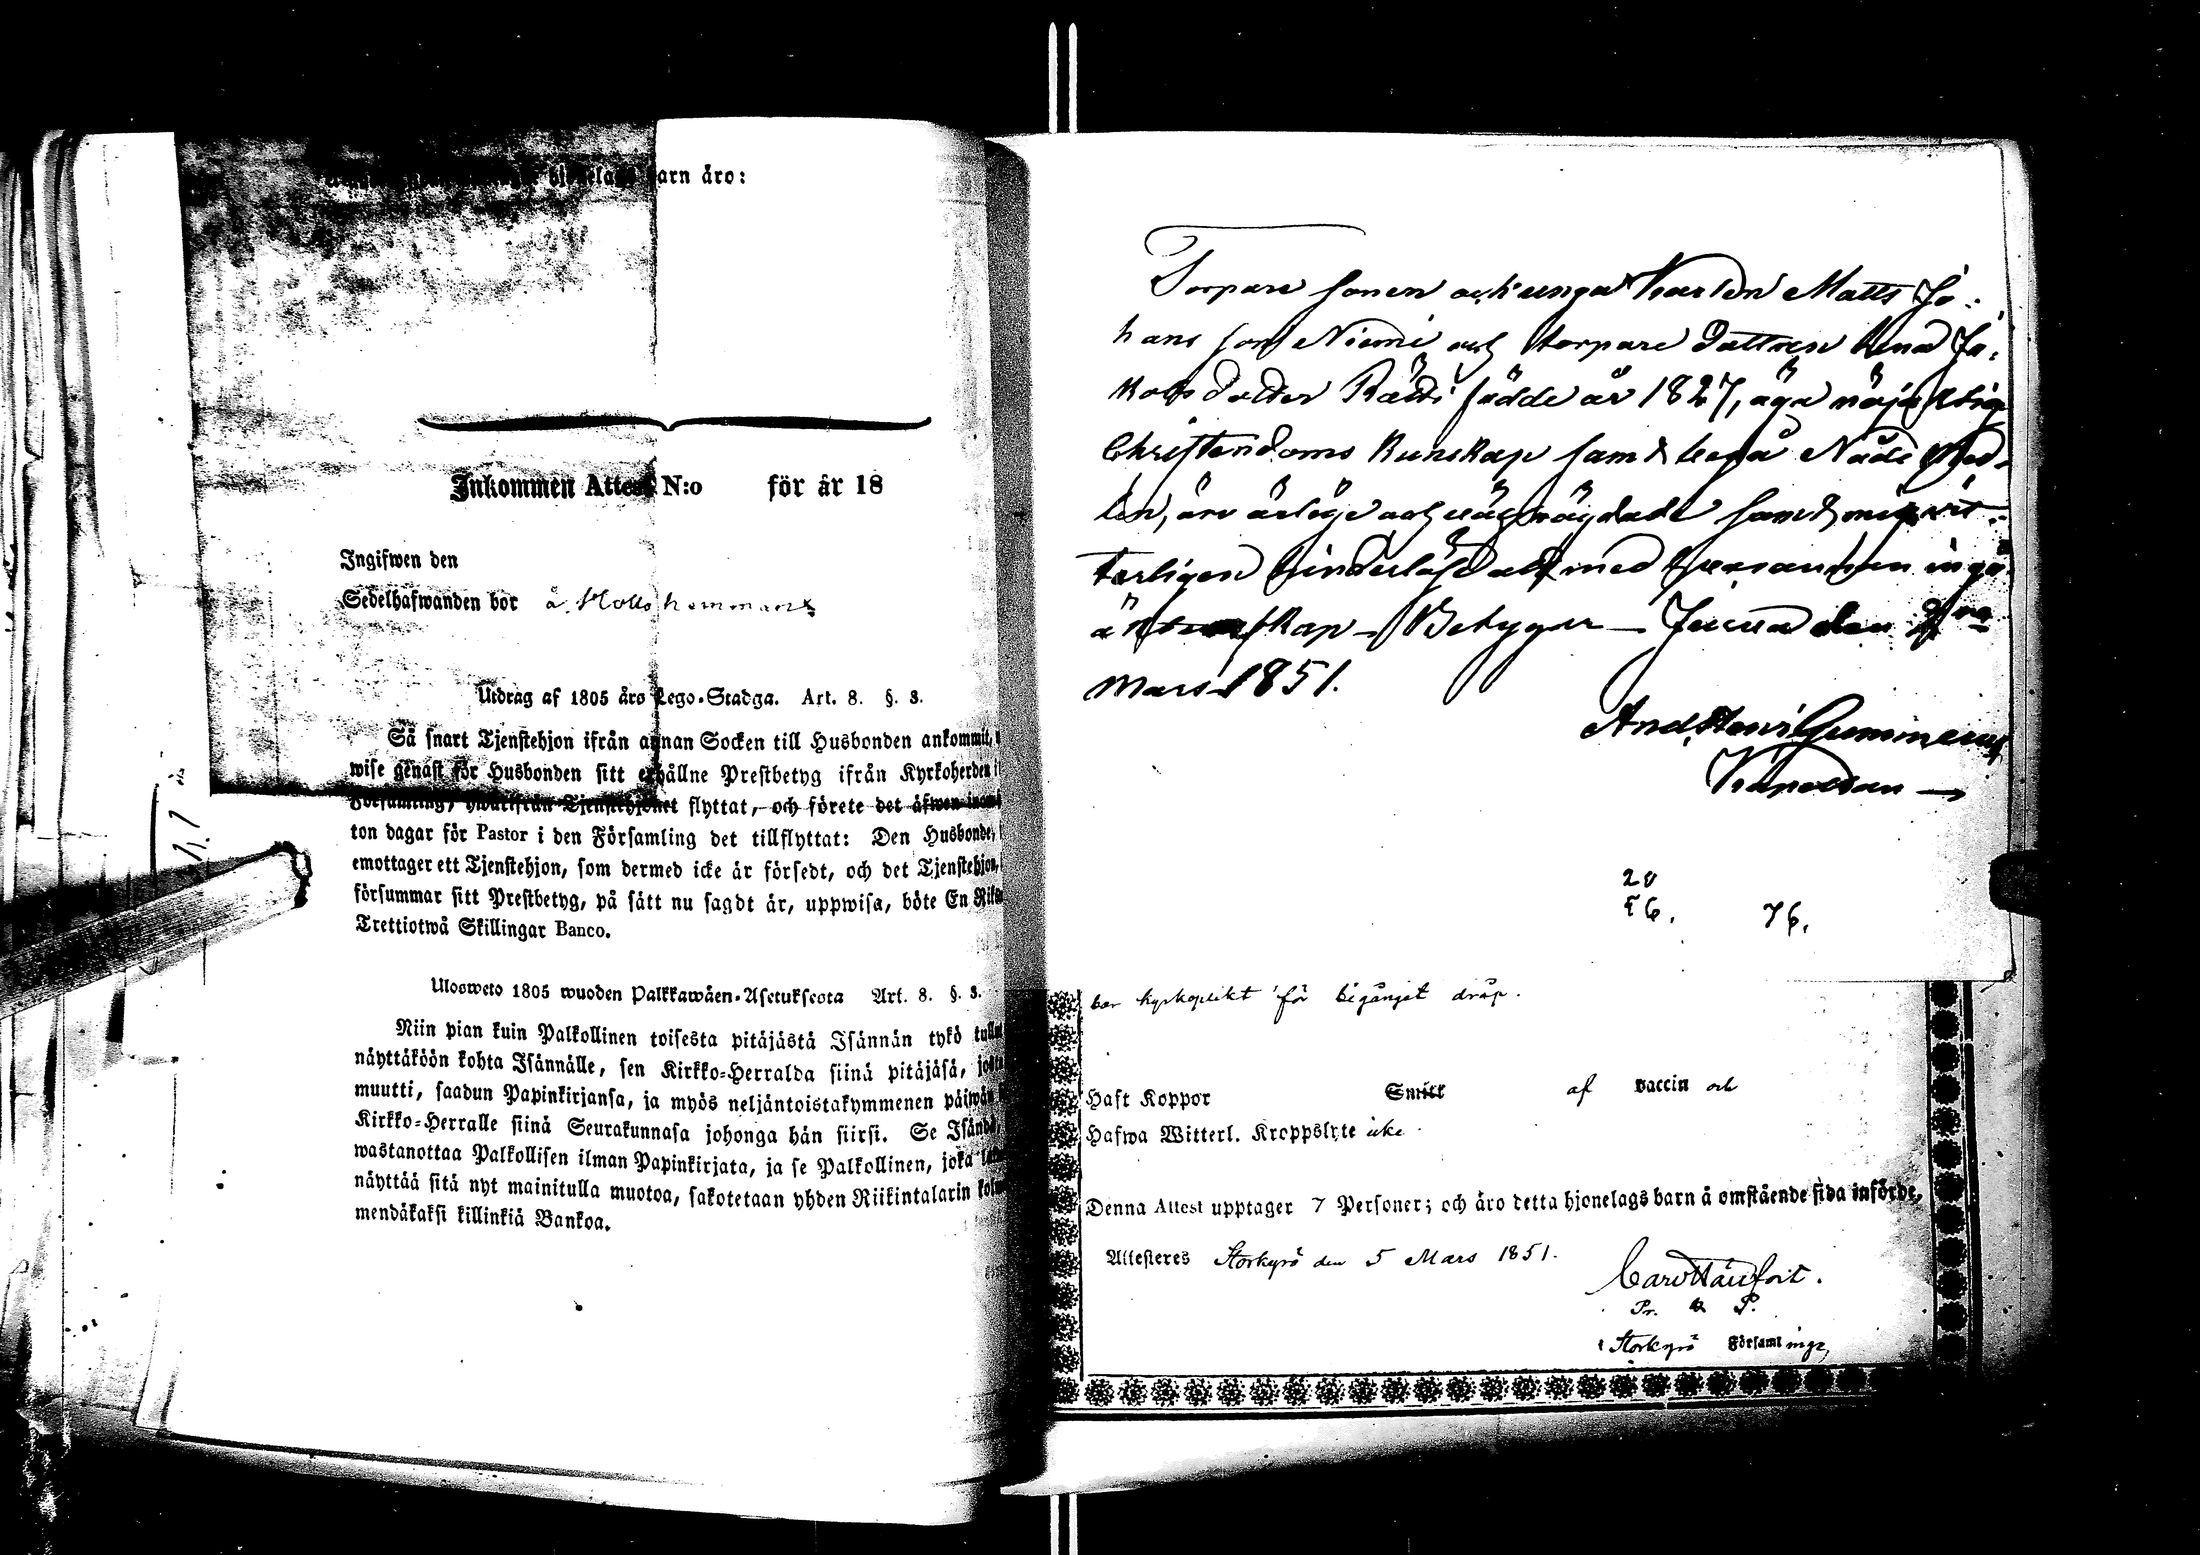 arn äro:
Inkommen Attest N:o för år 18
Ingifwen den
Sedelhafwanden bor å Holls hemman
Utdrag af 1805 års Lego-Stadga. Art. 8. §. 3.
Så snart Tjenstehjon ifrån annan Socken till Husbonden ankommit,
wise genast för Husbonden sitt erhållne Prestbetyg ifrån Kyrkoherden i
Församling, hwarifrån Tjenstehjonet flyttat, och förete det äfwen inom
ton dagar för Pastor i den Församling det tillflyttat: Den Husbonde,
emottager ett Tjenstehjon, som dermed icke är försedt, och det Tjenstehjon,
försummar sitt Prestbetyg, på sätt nu sagdt är, uppwisa, böte En Riks
Trettiotwå Skillingar Banco.
Ulosweto 1805 wuoden Palkkawäen-Asetuksesta Art. 8. §. 3.
Niin pian kuin Palkollinen toisesta pitäjästä Isännän tykö tullut
näyttäköön kohta Isännälle, sen Kirkko-Herralda siinä pitäjäsä, josta
muutti, saadun Papinkirjansa, ja myös neljäntoistakymmenen päiwän
Kirkko-Herralle siinä Seurakunnasa johonga hän siirsi. Se Isändä,
wastanottaa Palkollisen ilman Papinkirjata, ja se Palkollinen, joka
näyttää sitä nyt mainitulla muotoa, sakotetaan yhden Riikintalarin kolme
mendäkaksi killinkiä Bankoa.
Torpare sonen och unga Karlen Matts Jo-
hans son Niemi och torpare dottren Lena Ja-
kobs dotter Rätti födde år 1827, äga nöjaktig
Christendoms Kunskap samt begå Nåde Med-
len, äro ärlige och wäl frägdade samt mig wit-
terligen hinderslöse att med hwarannan ingå
äktenskap Betygar Jeura den
Mars 1851.
And. Henr. Gummerus
Kapellan
20
56.
76.
har kyrkoplikt för begånget dråp.
Haft Koppor Smitt af vaccin och
Hafwa Witterl. Kroppslyte icke
Denna Attest upptager 7 Personer; och äro detta hjonelags barn å omstående sida införde,
Attesteres Storkyrö den 5 Mars 1851.
Pr. & P.
i Storkyrö Församlings